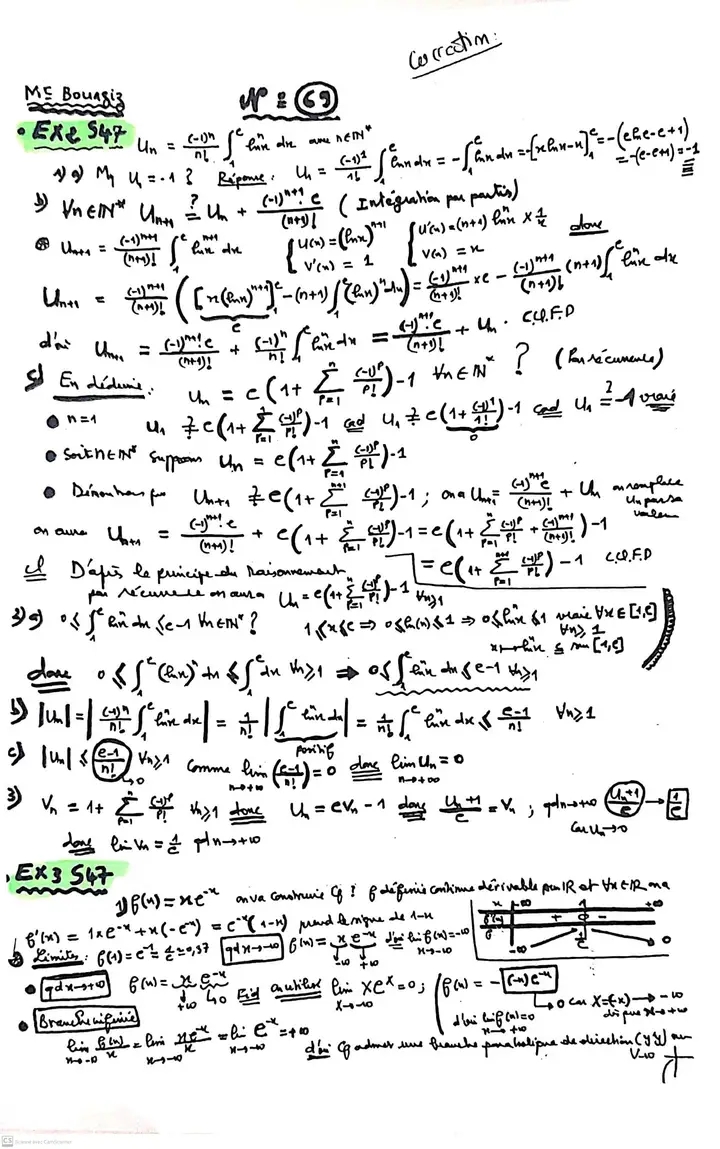 Correction:
Mr Bouagiz
N° = 69
• EX2 S47 Un = (-1)^n/n! ∫_1^e ln^n x dx avec n∈IN*
1) a) Mq U1 = -1 ? Réponse: U1 = (-1)^1/1! ∫_1^e ln x dx = -∫_1^e ln x dx = -[x ln x - x]_1^e = -(e ln e - e + 1) = -(e-e+1) = -1
b) ∀n∈IN* Un+1 =? Un + (-1)^{n+1} e/(n+1)! (Intégration par parties)
⊛ Un+1 = (-1)^{n+1}/(n+1)! ∫_1^e ln^{n+1} x dx { U(x) = (ln x)^{n+1} V'(x) = 1 { U'(x) = (n+1) ln^n x × 1/x V(x) = x donc
Un+1 = (-1)^{n+1}/(n+1)! ([x(ln x)^{n+1}]_1^e - (n+1)∫_1^e (ln x)^n dx) = (-1)^{n+1}/(n+1)! × e - (-1)^{n+1}/(n+1)! (n+1)∫_1^e ln^n x dx
e
d'où Un+1 = (-1)^{n+1} e/(n+1)! + (-1)^n/n! ∫_1^e ln^n x dx = (-1)^{n+1} e/(n+1)! + Un . C.Q.F.D
c) En déduire: Un = e(1 + Σ_{p=1}^n (-1)^p/p!) - 1 ∀n∈IN* ? (Par récurrence)
• n=1 U1 =? e(1 + Σ_{p=1}^1 (-1)^p/p!) - 1 cad U1 =? e(1 + (-1)^1/1!) - 1 cad U1 =? -1 vraie
0
• Soit n∈IN* supposons Un = e(1 + Σ_{p=1}^n (-1)^p/p!) - 1
• Démontrons que Un+1 =? e(1 + Σ_{p=1}^{n+1} (-1)^p/p!) - 1 ; on a Un+1 = (-1)^{n+1} e/(n+1)! + Un on remplace Un par sa valeur
on aura Un+1 = (-1)^{n+1} e/(n+1)! + e(1 + Σ_{p=1}^n (-1)^p/p!) - 1 = e(1 + Σ_{p=1}^n (-1)^p/p! + (-1)^{n+1}/(n+1)!) - 1
= e(1 + Σ_{p=1}^{n+1} (-1)^p/p!) - 1 C.Q.F.D
cl D'après le principe du raisonnement
par récurrence on aura Un = e(1 + Σ_{p=1}^n (-1)^p/p!) - 1 ∀n≥1
2) a) 0 ≤ ∫_1^e ln^n x dx ≤ e-1 ∀n∈IN* ? 1≤x≤e ⇒ 0≤ln(x)≤1 ⇒ 0≤ln^n x≤1 vraie ∀x∈[1,e]
∀n≥1
x↦ln^n x c sur [1,e]
donc 0 ≤ ∫_1^e (ln x)^n dx ≤ ∫_1^e dx ∀n≥1 ⇒ 0≤∫_1^e ln^n x dx ≤ e-1 ∀n≥1
b) |Un| = |(-1)^n/n! ∫_1^e ln^n x dx| = 1/n! |∫_1^e ln^n x dx| = 1/n! ∫_1^e ln^n x dx ≤ (e-1)/n! ∀n≥1
positif
c) |Un| ≤ (e-1)/n! ∀n≥1 comme lim_{n→+∞} (e-1)/n! = 0 donc lim_{n→+∞} Un = 0
→0
3) Vn = 1 + Σ_{p=1}^n (-1)^p/p! ∀n≥1 donc Un = eVn - 1 donc (Un+1)/e = Vn ; qd n→+∞ (Un+1)/e → 1/e
car Un→0
donc lim Vn = 1/e qd n→+∞
• EX3 S47
1) f(x) = x e^{-x} on va construire Cf ? f définie continue dérivable sur IR et ∀x∈IR on a
f'(x) = 1×e^{-x} + x(-e^{-x}) = e^{-x}(1-x) prend le signe de 1-x
x -∞ 1 +∞
f'(x) + 0 -
f -∞ 1/e 0
Limites: f(1) = e^{-1} = 1/e ≈ 0,37 qd x→-∞ f(x) = x e^{-x} d'où lim_{x→-∞} f(x) = -∞
-∞ +∞
• qd x→+∞ f(x) = x e^{-x} F.id on utilise lim_{X→-∞} Xe^X = 0 ; f(x) = -(-x)e^{-x}
+∞ 0
→0 car X=(-x)→-∞ dès que x→+∞
d'où lim_{x→+∞} f(x) = 0
• Branche infinie
lim_{x→-∞} f(x)/x = lim_{x→-∞} xe^{-x}/x = lim_{x→-∞} e^{-x} = +∞
d'où Cf admet une branche parabolique de direction (yy') au V(-∞)
CS Scanné avec CamScanner